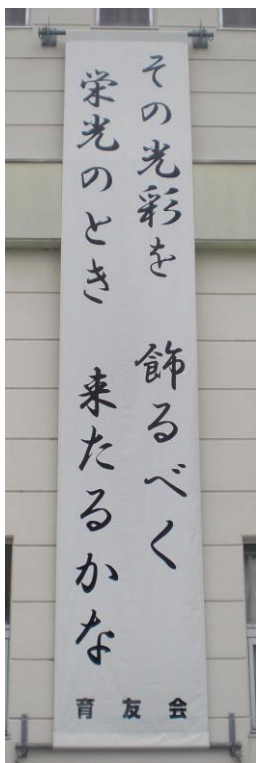 その光彩を 飾るべく
栄光のとき 来たるかな
育友会